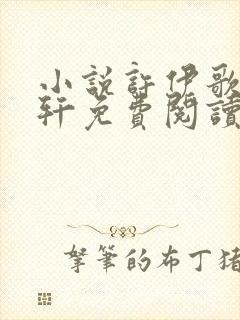 小說許伊歌
軒免費閱讀
拏筆的布丁猪